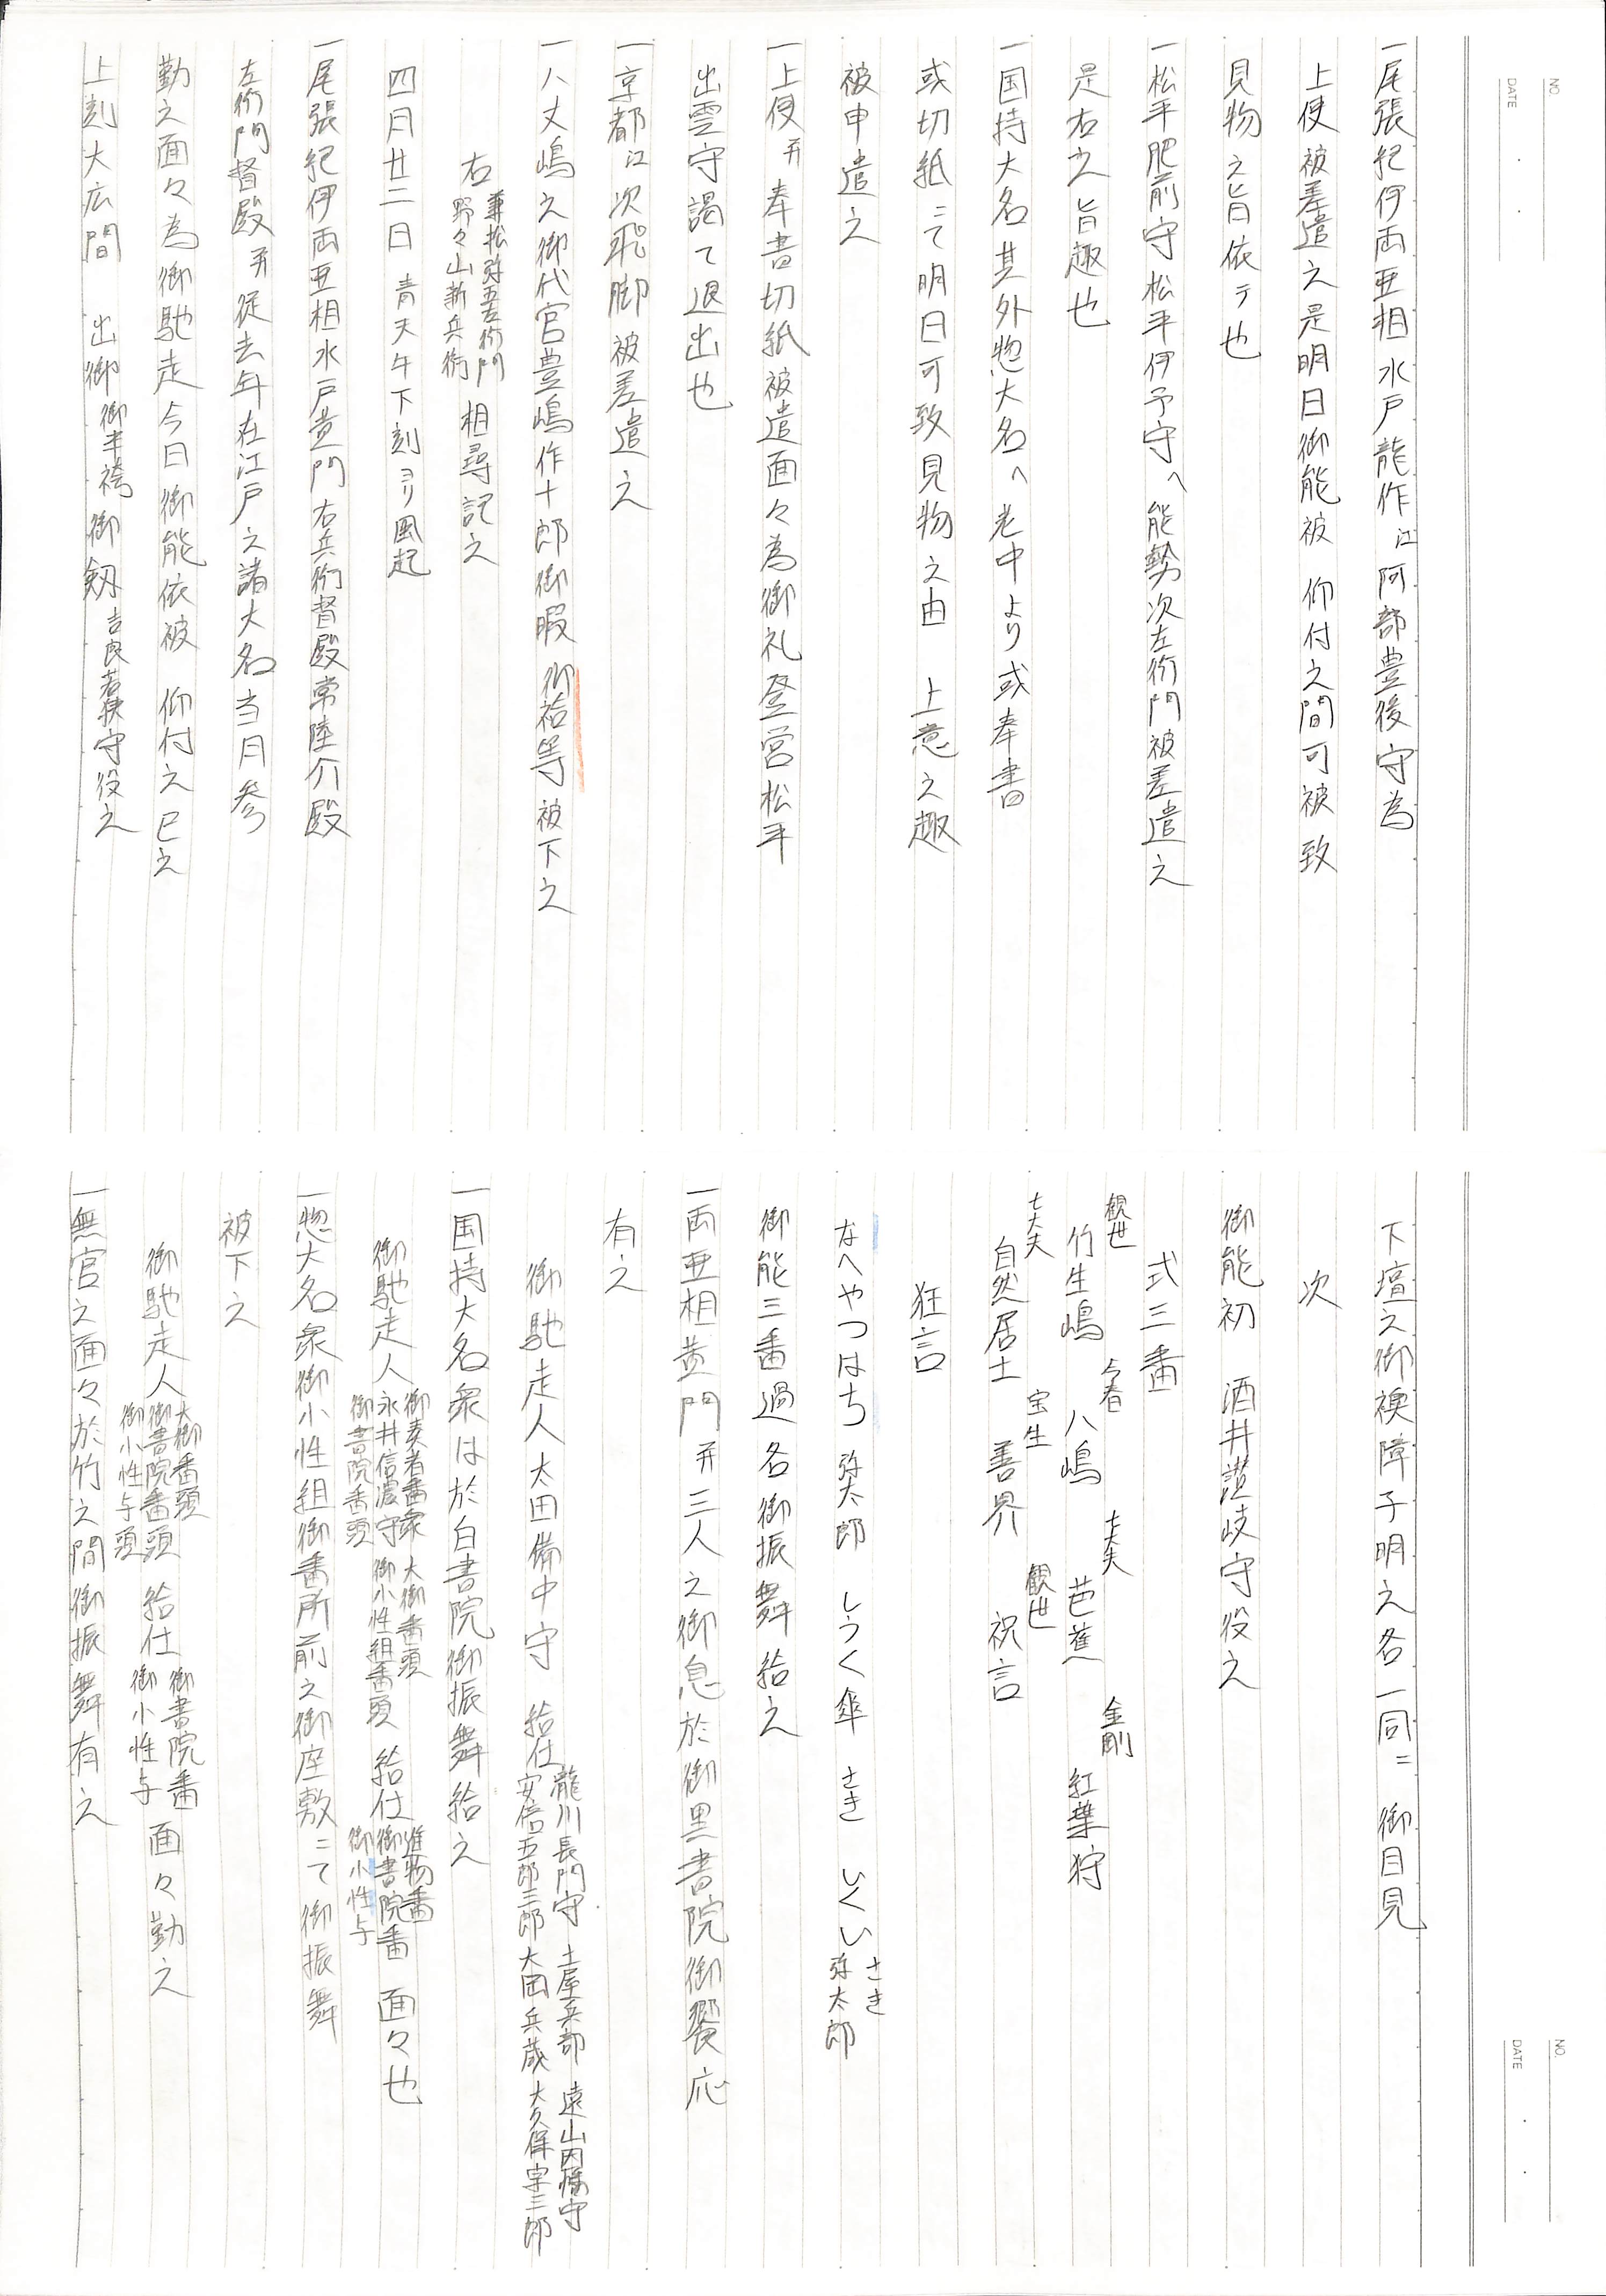 NO.
DATE
一尾張紀伊両亜相水戸龍作江阿部豊後守為
上使被差遣之是明日御能被 仰付之間可被致
見物之旨依テ也
一松平肥前守松平伊予守へ能勢次左衛門被差遣之
是右之旨趣也
一国持大名其外惣大名へ老中より或奉書
或切紙ニて明日可致見物之由 上意之趣
被申遣之
一上使并奉書切紙被遣面々為御礼登営松平
出雲守謁て退出也
一京都江次飛脚被差遣之
一八丈嶋之御代官豊嶋作十郎御暇 御袷等被下之
右 兼松弥五左衛門 野々山新兵衛 相尋記之
四月廿二日 青天午下刻ヨリ風起
一尾張紀伊両亜相水戸黄門右兵衛督殿常陸介殿
左衛門督殿并従去年在江戸之諸大名当月参
勤之面々為御馳走今日御能依被 仰付之巳之
上刻大広間 出御 御半袴 御剱 吉良若狭守役之
NO.
DATE
下壇之御襖障子明之各一同ニ 御目見
次
御能初 酒井讃岐守役之
式三番
観世 竹生嶋 今春 八嶋 七大夫 芭蕉 金剛 紅葉狩
七大夫 自然居士 宝生 善界 観世 祝言
狂言
なへやつはち 弥太郎 しうく傘 さき いくい さき 弥太郎
御能三番過各御振舞給之
一両亜相黄門并三人之御息於御黒書院御饗応
有之
御馳走人太田備中守 給仕 瀧川長門守 土屋兵部 遠山因幡守 安倍五郎三郎 大岡兵蔵 大久保宇三郎
一国持大名衆は於白書院御振舞給之
御馳走人 御奏者番衆 大御番頭 永井信濃守 御小性組番頭 御書院番頭 給仕 進物番 御書院番 御小性与 面々也
一惣大名衆御小性組御番所前之御座敷ニて御振舞
被下之
御馳走人 大御番頭 御書院番頭 御小性与頭 給仕 御書院番 御小性与 面々勤之
一無官之面々於竹之間御振舞有之